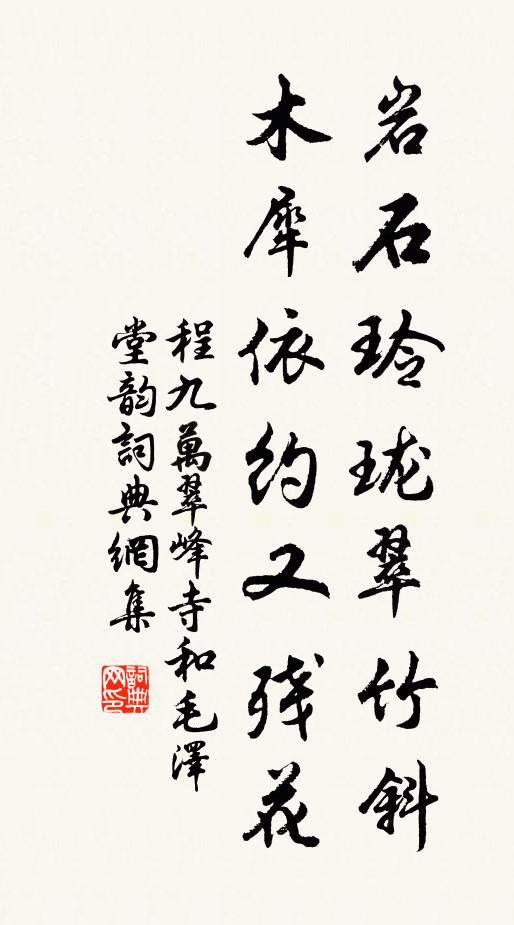 岩石玲珑翠竹斜
木犀依约又残花
程九萬翠峰寺和毛澤
堂韵詞典網集
詞典网印